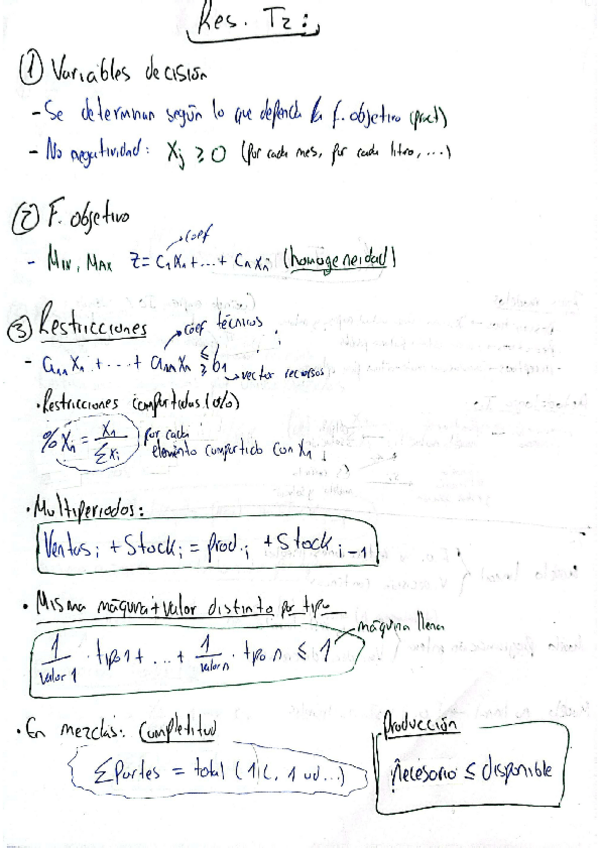 Res. T2:
① Variables decisión
- Se determinan según lo que dependa la f. objetivo (prod)
- No negatividad: Xj ≥ 0 (por cada mes, por cada litro, ...)
② F. objetivo
coef
- MIN, MAX Z = C1X1 + ... + CnXn (homogeneidad)
③ Restricciones
coef técnicos
- a11X1 + ... + a1nXn ≤ ≥ b1
vector recursos
· Restricciones compartidas (%)
%X1 = X1 / ΣXi por cada
elemento compartido con X1
· Multiperiodos:
Ventas i + Stock i = prod. i + Stock i-1
· Misma máquina + valor distinto por tipo
máquina llena
1/valor 1 · tipo 1 + ... + 1/valor n · tipo n ≤ 1
· En mezclas: Completitud
ΣPartes = total (1L, 1 ud...)
Producción
Necesario ≤ disponible